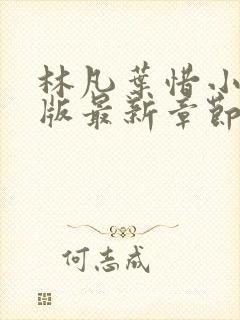 林凡葉惜小
版最新章節
何志成